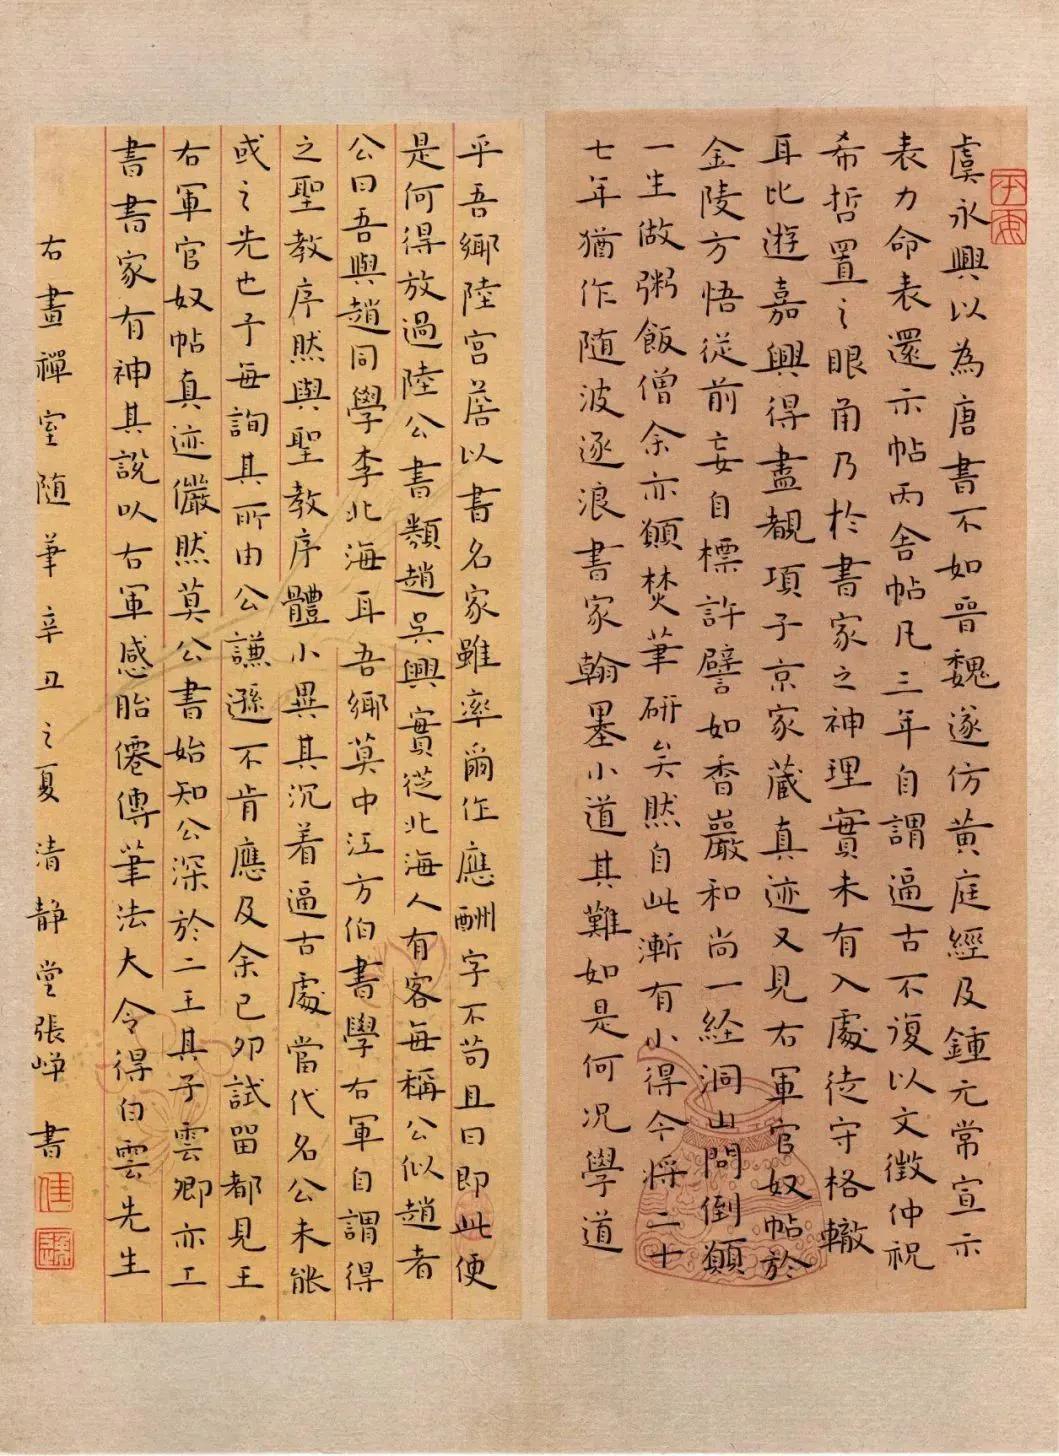 虞永興以為唐書不如晉魏遂仿黃庭經及鍾元常宣示
表力命表還示帖丙舍帖凡三年自謂逼古不復以文徵仲祝
希哲置之眼角乃於書家之神理實未有入處徒守格轍
耳比遊嘉興得盡覩項子京家藏真迹又見右軍官奴帖於
金陵方悟從前妄自標許譬如香巖和尚一經洞山問倒願
一生做粥飯僧余亦願焚筆研矣然自此漸有小得今將二十
七年猶作随波逐浪書家翰墨小道其難如是何况學道
乎吾鄉陸宮詹以書名家雖率爾作應酬字不苟且曰即此便
是何得放過陸公書類趙吳興實從北海人有客每稱公似趙者
公曰吾與趙同學李北海耳吾鄉莫中江方伯書學右軍自謂得
之聖教序然與聖教序體小異其沉着逼古處當代名公未能
或之先也予每詢其所由公謙遜不肯應及余己卯試留都見王
右軍官奴帖真迹儼然莫公書始知公深於二王其子雲卿亦工
書書家有神其說以右軍感胎僊傳筆法大令得白雲先生
右畫禪室随筆辛丑之夏清静堂張崋書